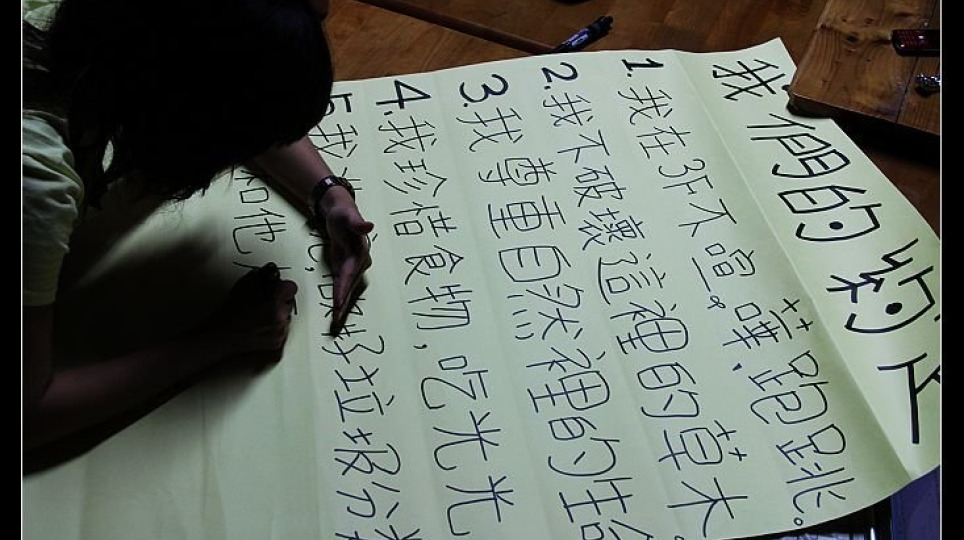 我們的約
1.我在3F不喧嘩、跑跳。
2.我不破壞這裡的草木
3.我尊重自然裡的生
4.我珍惜食物,吃光光
5.我 做好垃圾分
和他